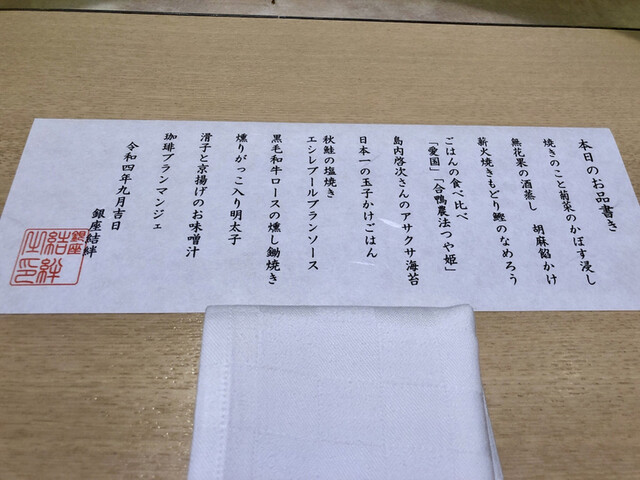 本日のお品書き
焼きのこと菊菜のかぼす浸し
無花果の酒蒸し　胡麻餡かけ
薪火焼きもどり鰹のなめろう
ごはんの食べ比べ
「愛国」「合鴨農法つや姫」
島内啓次さんのアサクサ海苔
日本一の玉子かけごはん
秋鮭の塩焼き
エシレブールブランソース
黒毛和牛ロースの燻し鋤焼き
燻りがっこ入り明太子
滑子と京揚げのお味噌汁
珈琲ブランマンジェ
令和四年九月吉日
銀座結絆
銀座
結絆
之印